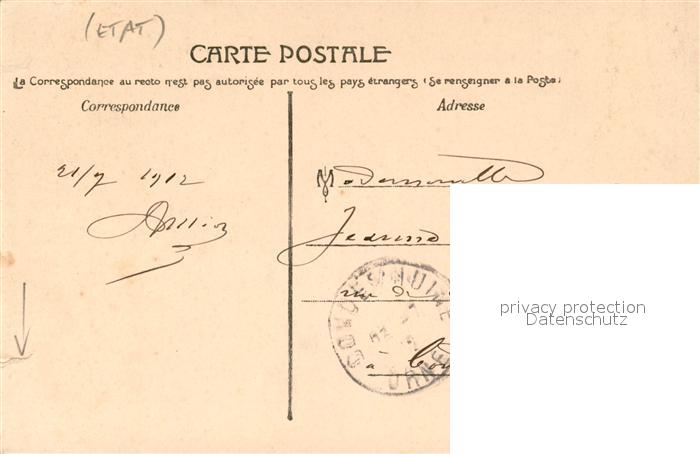 (ETAT)
CARTE POSTALE
La Correspondance au recto n'est pas autorisée par tous les pays étrangers (Se renseigner à la Poste)
Correspondance
Adresse
21/7 1912
Mademoiselle
rue de
à
ORNE
privacy protection
Datenschutz